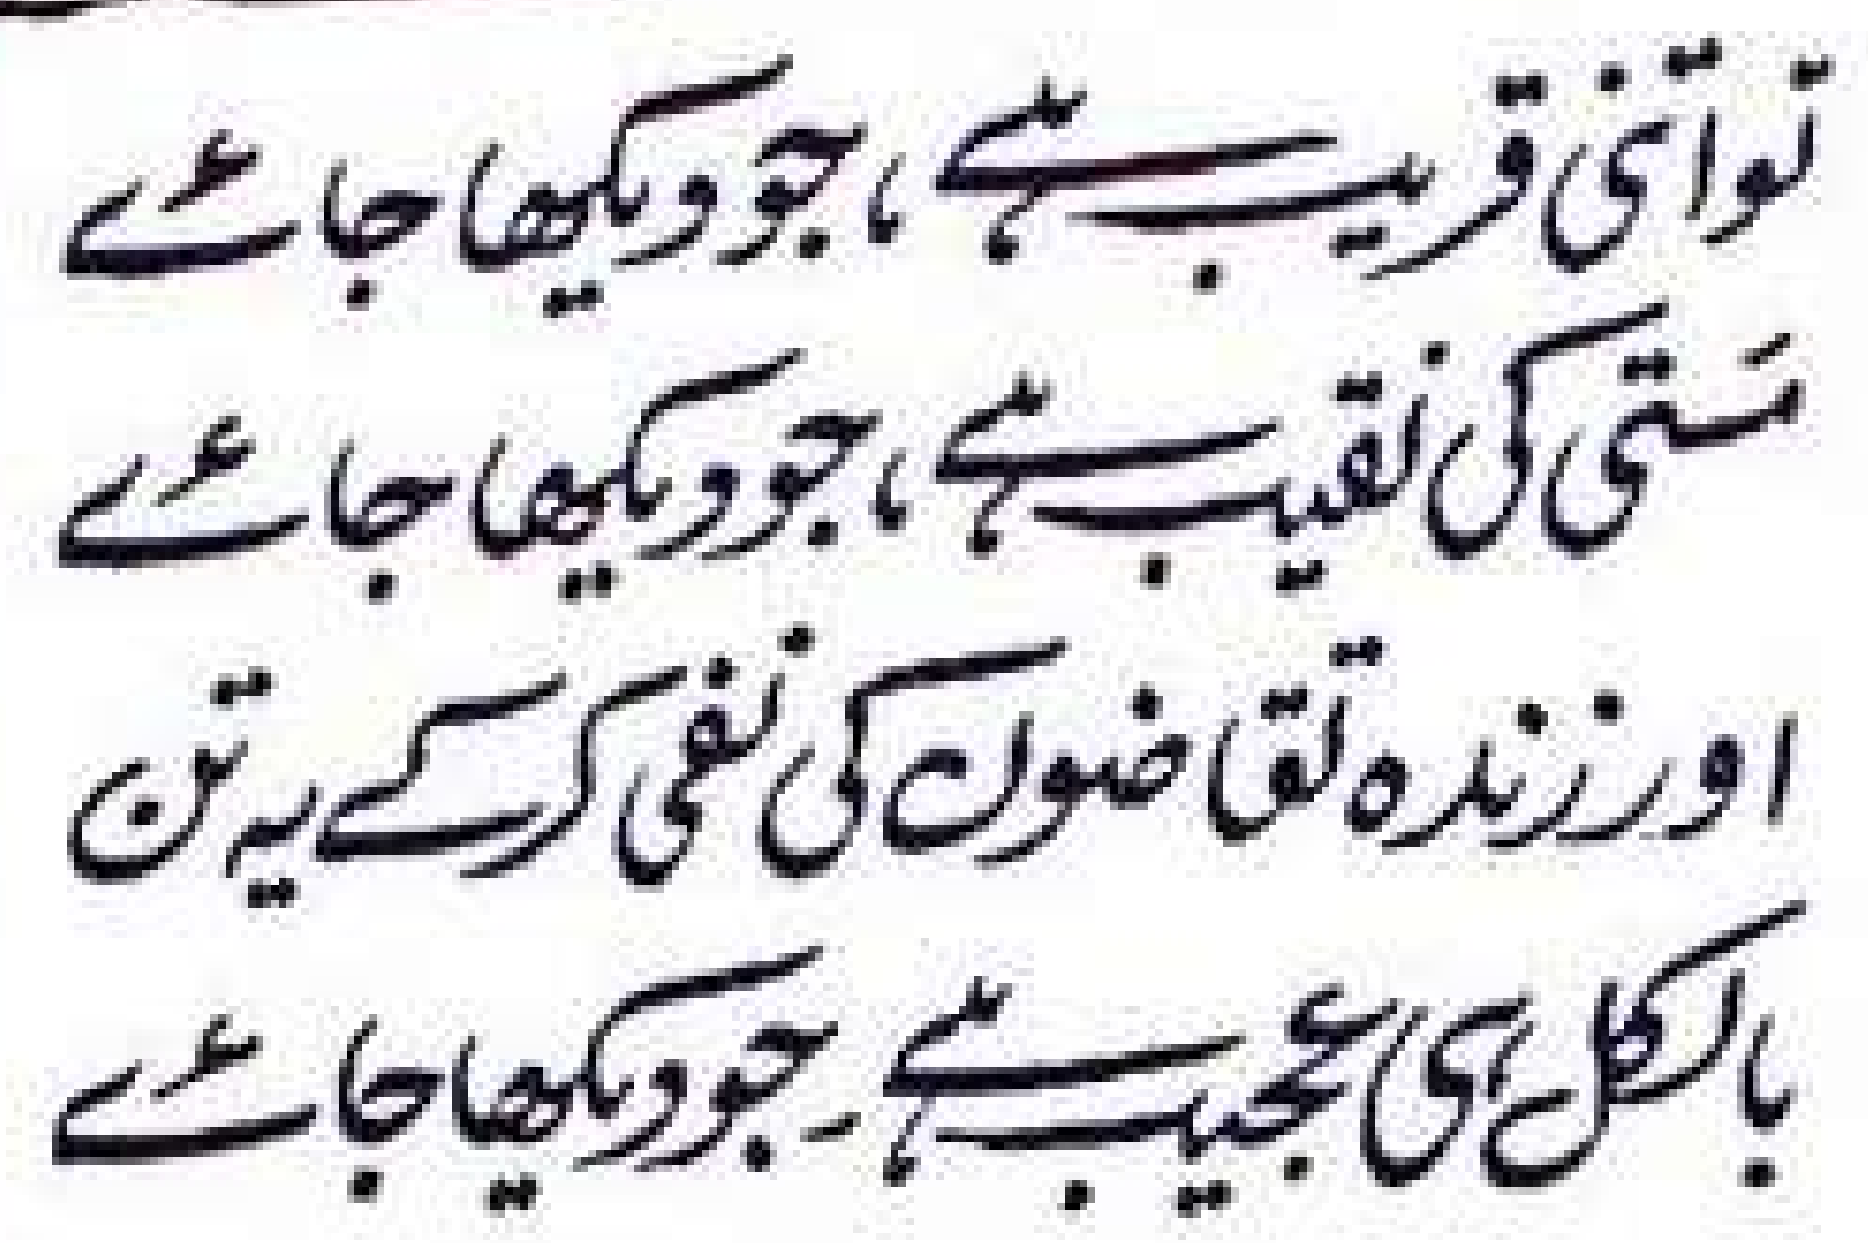 تو اتنی قریب ہے ، جو دیکھا جائے
مَستی کی نقیب ہے ، جو دیکھا جائے
اور زندہ تقاضوں کی نفی کر کے یہ تن
بالکل ہی عجیب ہے ۔ جو دیکھا جائے